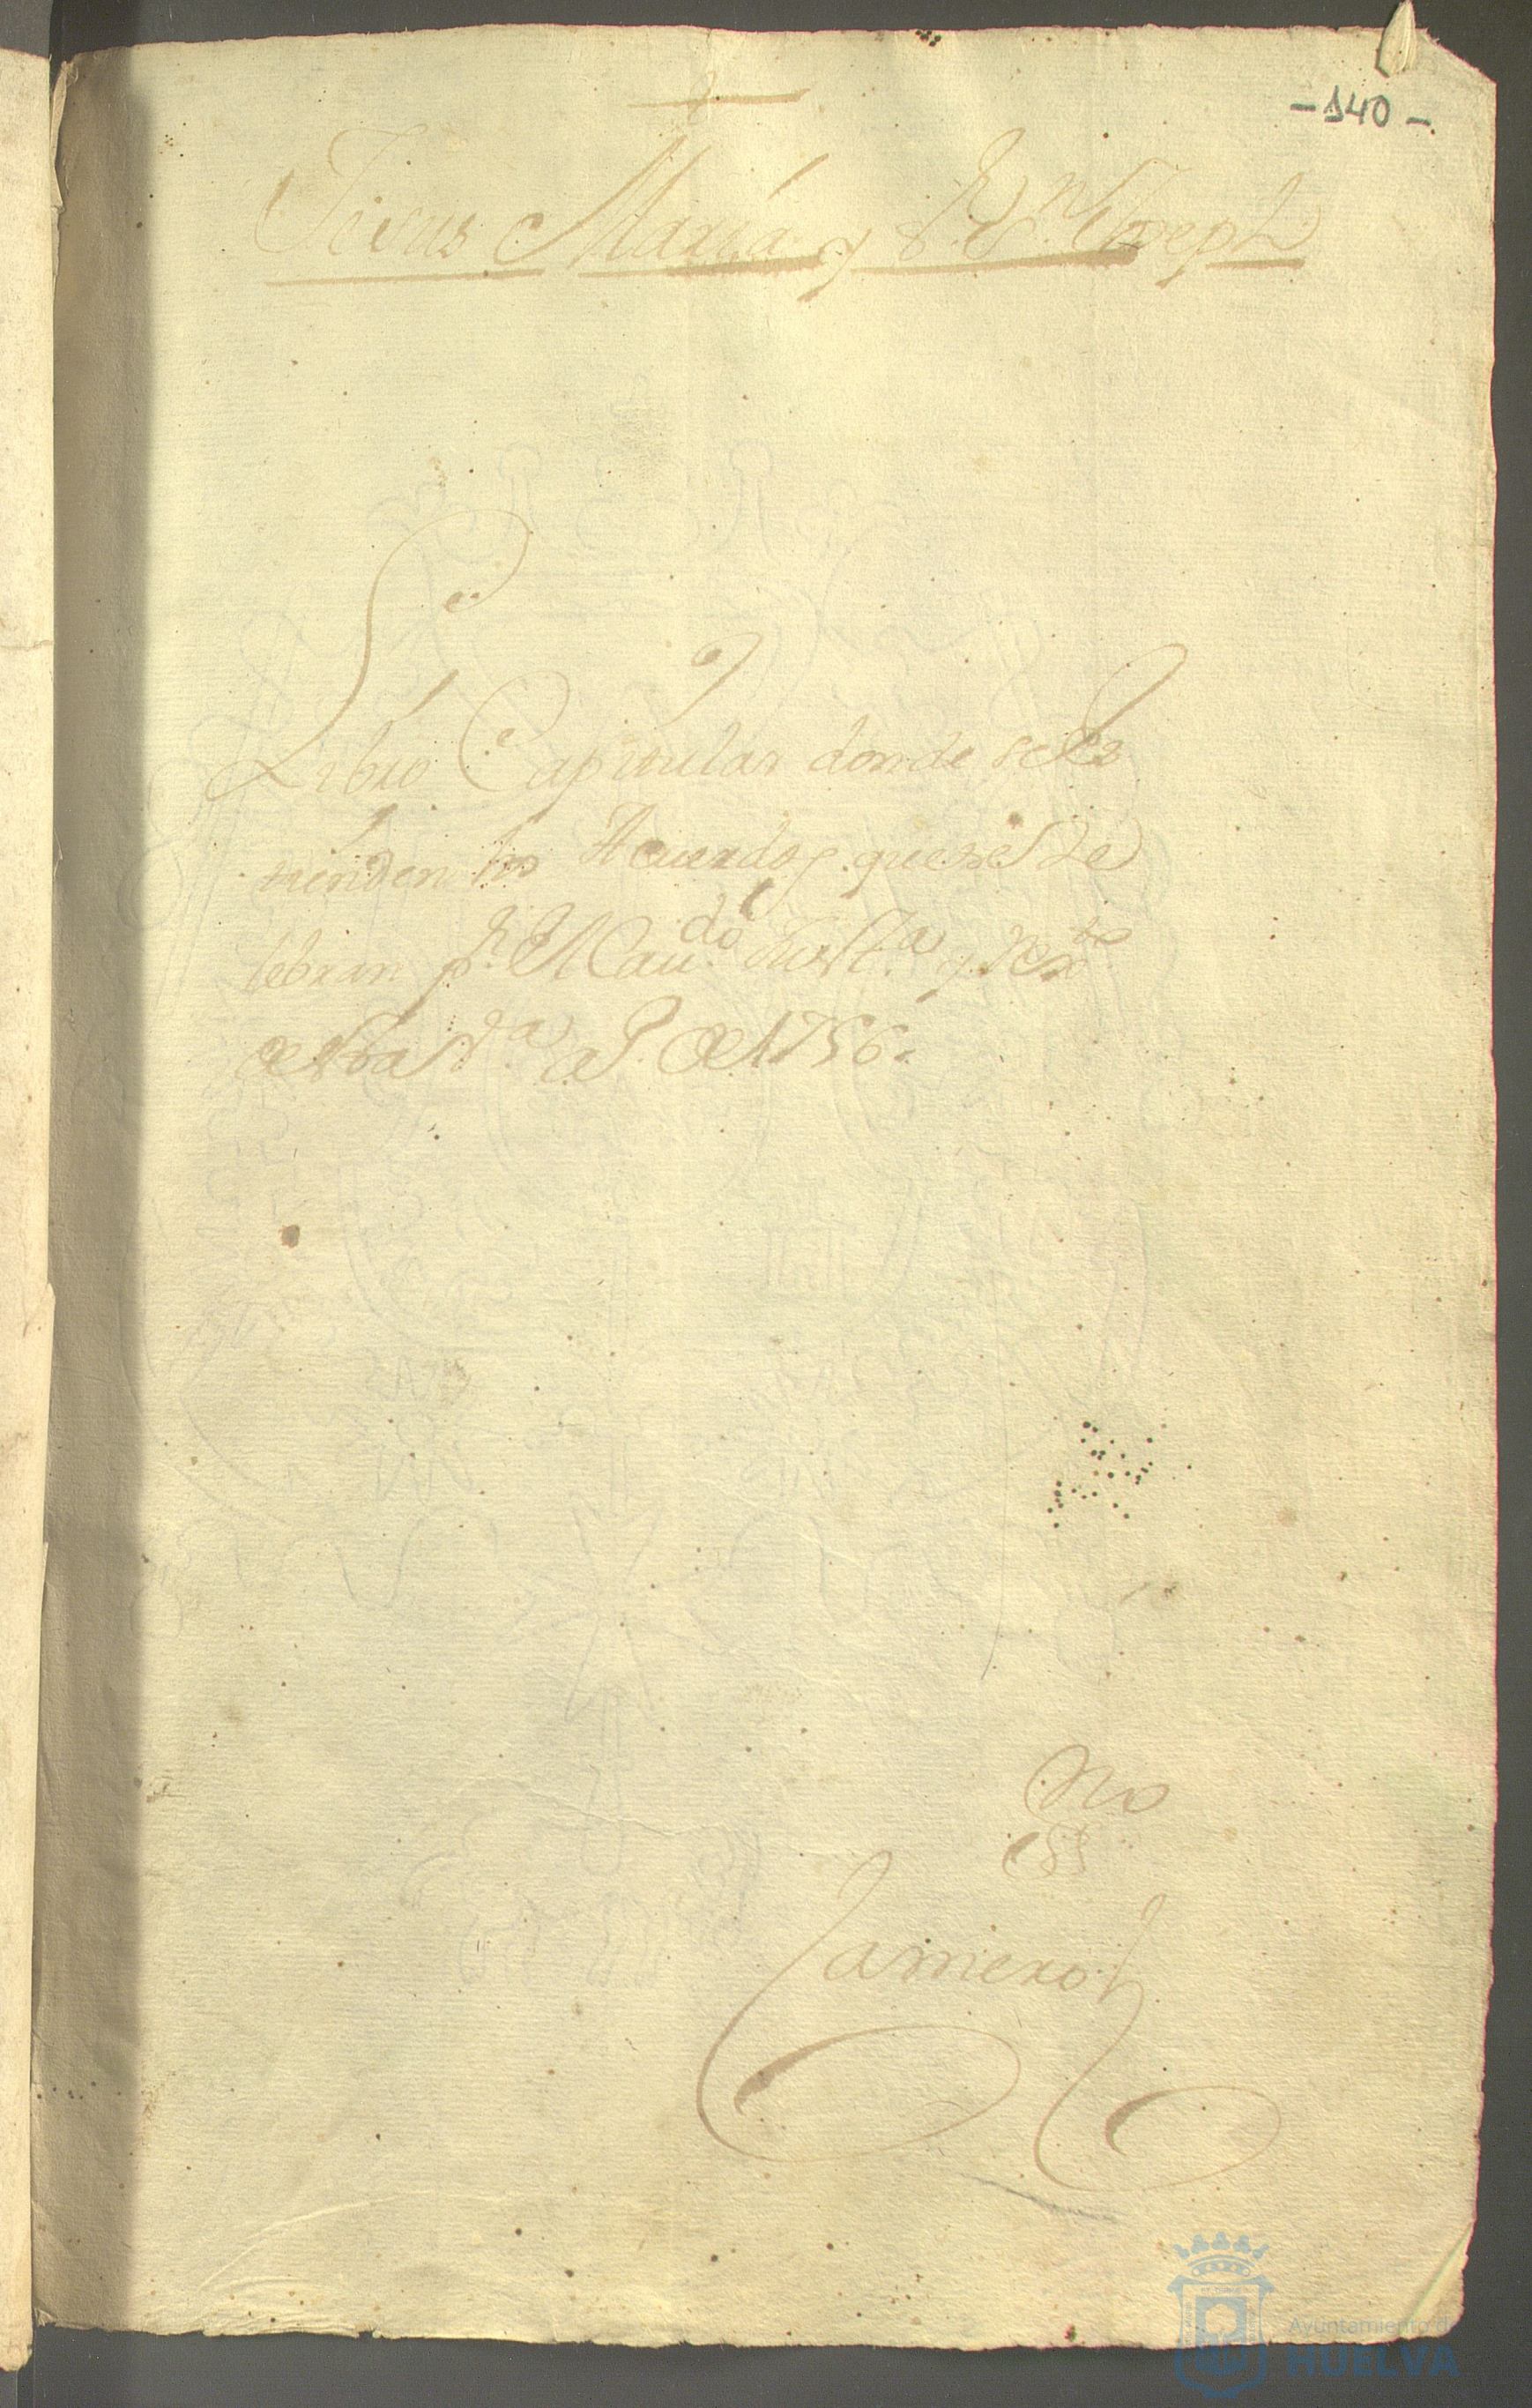 -140-
Jesus Maria y S.r S.n Joseph
Libro Capitular donde se es
tienden los Acuerdos que se ze
lebran p.r el Cau.do Just.a y Rex.to
de esta V.a a.º de 1756.
SS.no
Zamero
Ayuntamiento d
HUELVA